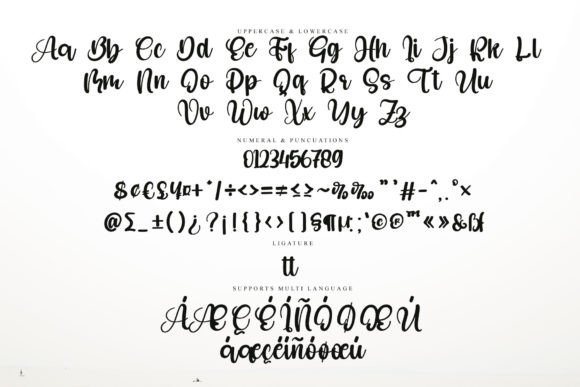 UPPERCASE & LOWERCASE
Aa Bb Cc Dd Ee Ff Gg Hh Ii Jj Kk Ll
Mm Nn Oo Pp Qq Rr Ss Tt Uu
Vv Ww Xx Yy Zz
NUMERAL & PUNCUATIONS
0123456789
$¢€£¥¤+*/÷<>=≠≤≥~%‰"'#-^,.°×
@Σ_±()¿?¡!{}‹›[]§¶µ:;'©®™«»&ß
LIGATURE
tt
SUPPORTS MULTI LANGUAGE
ÁÆÇÉÍÑÓØŒÚ
áæçéíñóøœú